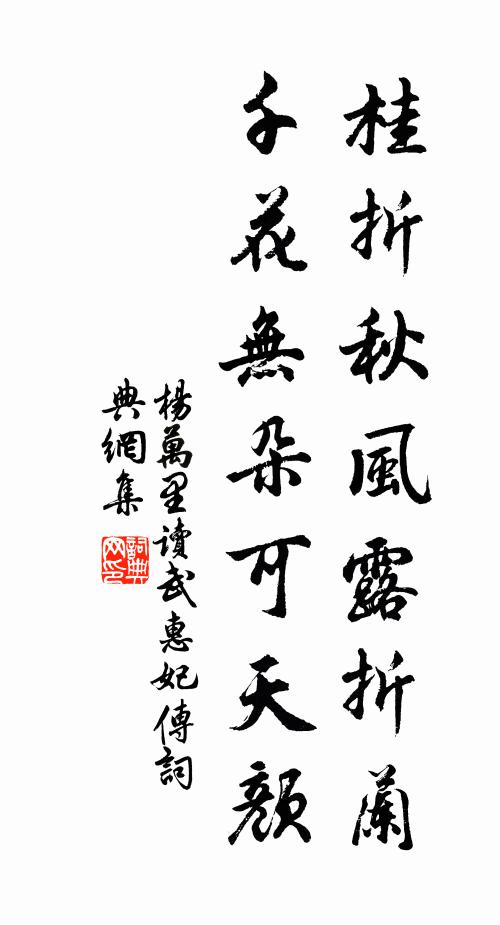 桂折秋風露折蘭
千花無朵可天顏
楊萬里讀武惠妃傳詞
典網集
詞典
网印